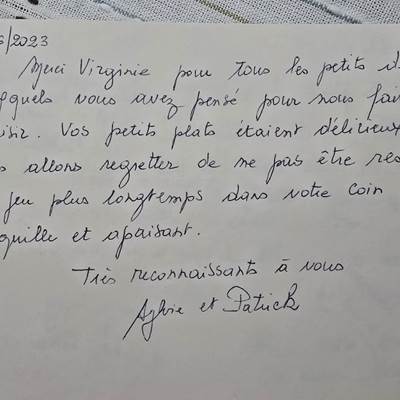 /2023
Merci Virginie pour tous les petits d
quels vous avez pensé pour nous fai
isir. Vos petits plats étaient délicieux
s allons regretter de ne pas être res
peu plus longtemps dans votre coin
quille et apaisant.
Très reconnaissants à vous
Sylvie et Patrick